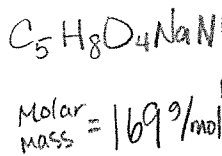 C₅H₈O₄NaN
Molar
mass = 169 g/mol